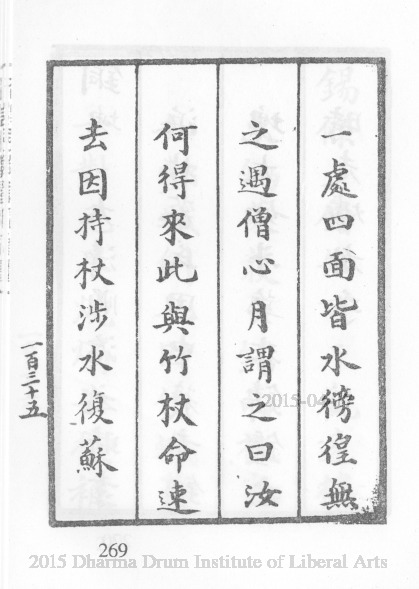 一處四面皆水徬徨無
之遇僧心月謂之曰汝
何得來此與竹杖命速
去因持杖涉水復蘇
一百三十五
269
2015-04
2015 Dharma Drum Institute of Liberal Arts